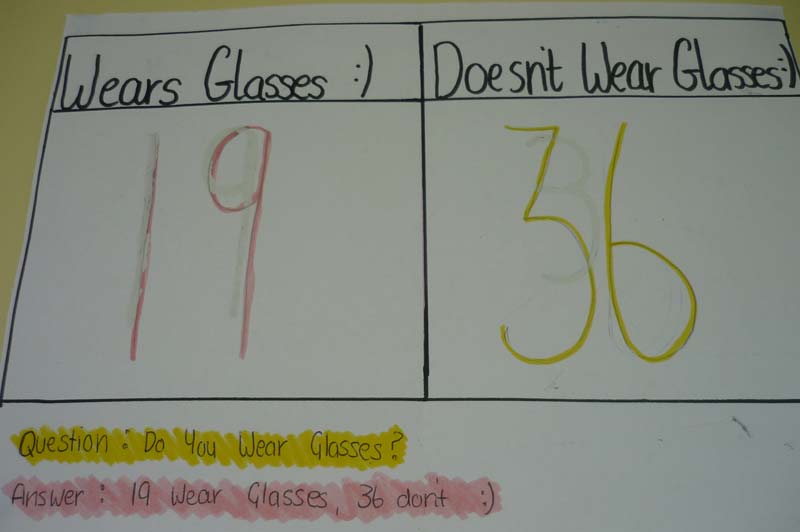 Wears Glasses :)
Doesn't Wear Glasses:)
19
36
Question: Do You Wear Glasses?
Answer: 19 Wear Glasses, 36 don't :)